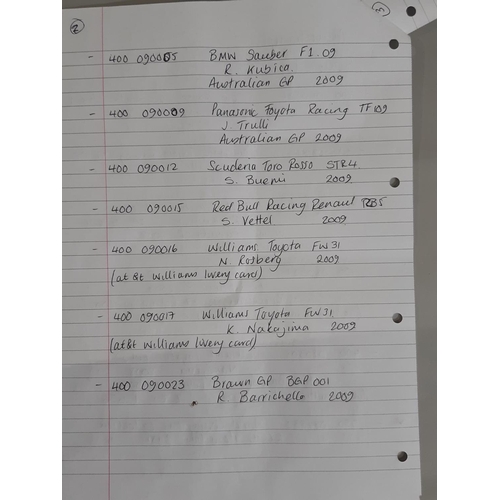 2
3
- 400 090005 BMW Sauber F1.09
R. Kubica.
Australian GP 2009
- 400 090009 Panasonic Toyota Racing TF109
J. Trulli
Australian GP 2009
- 400 090012 Scuderia Toro Rosso STR4
S. Buemi 2009
- 400 090015 Red Bull Racing Renault RB5
S. Vettel 2009
- 400 090016 Williams Toyota FW31
N. Rosberg 2009
(at&t Williams livery card)
- 400 090017 Williams Toyota FW31
K. Nakajima 2009
(at&t Williams livery card)
- 400 090023 Brawn GP BGP 001
R. Barrichello 2009